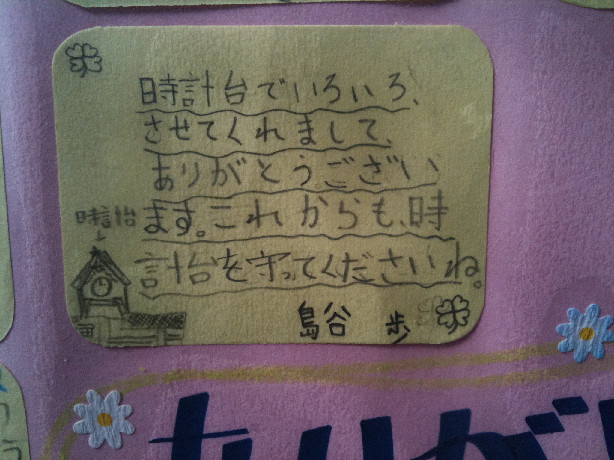 時計台でいろいろ、
させてくれまして、
ありがとうござい
ます。これからも、時
計台を守ってくださいね。
時計台
島谷 歩
ありが